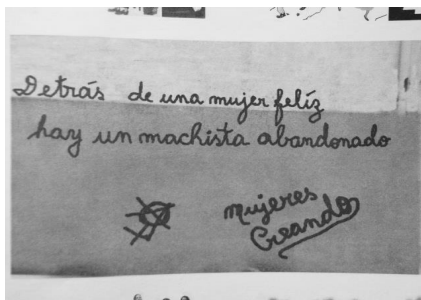 Detrás de una mujer felíz
hay un machista abandonado
mujeres
Creando